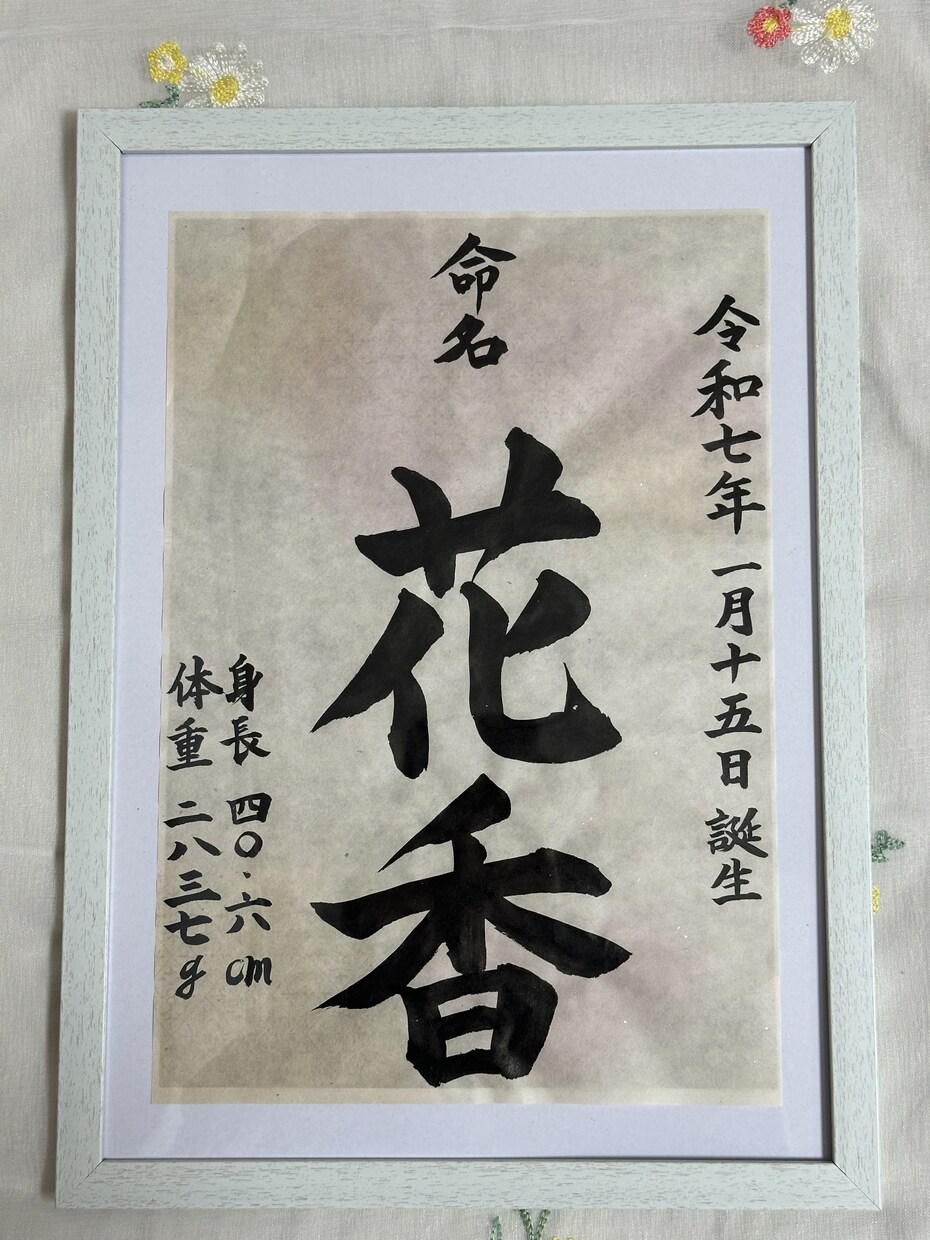 令和七年 一月十五日 誕生
命名
花香
身長 四〇.六cm
体重 二八三七g